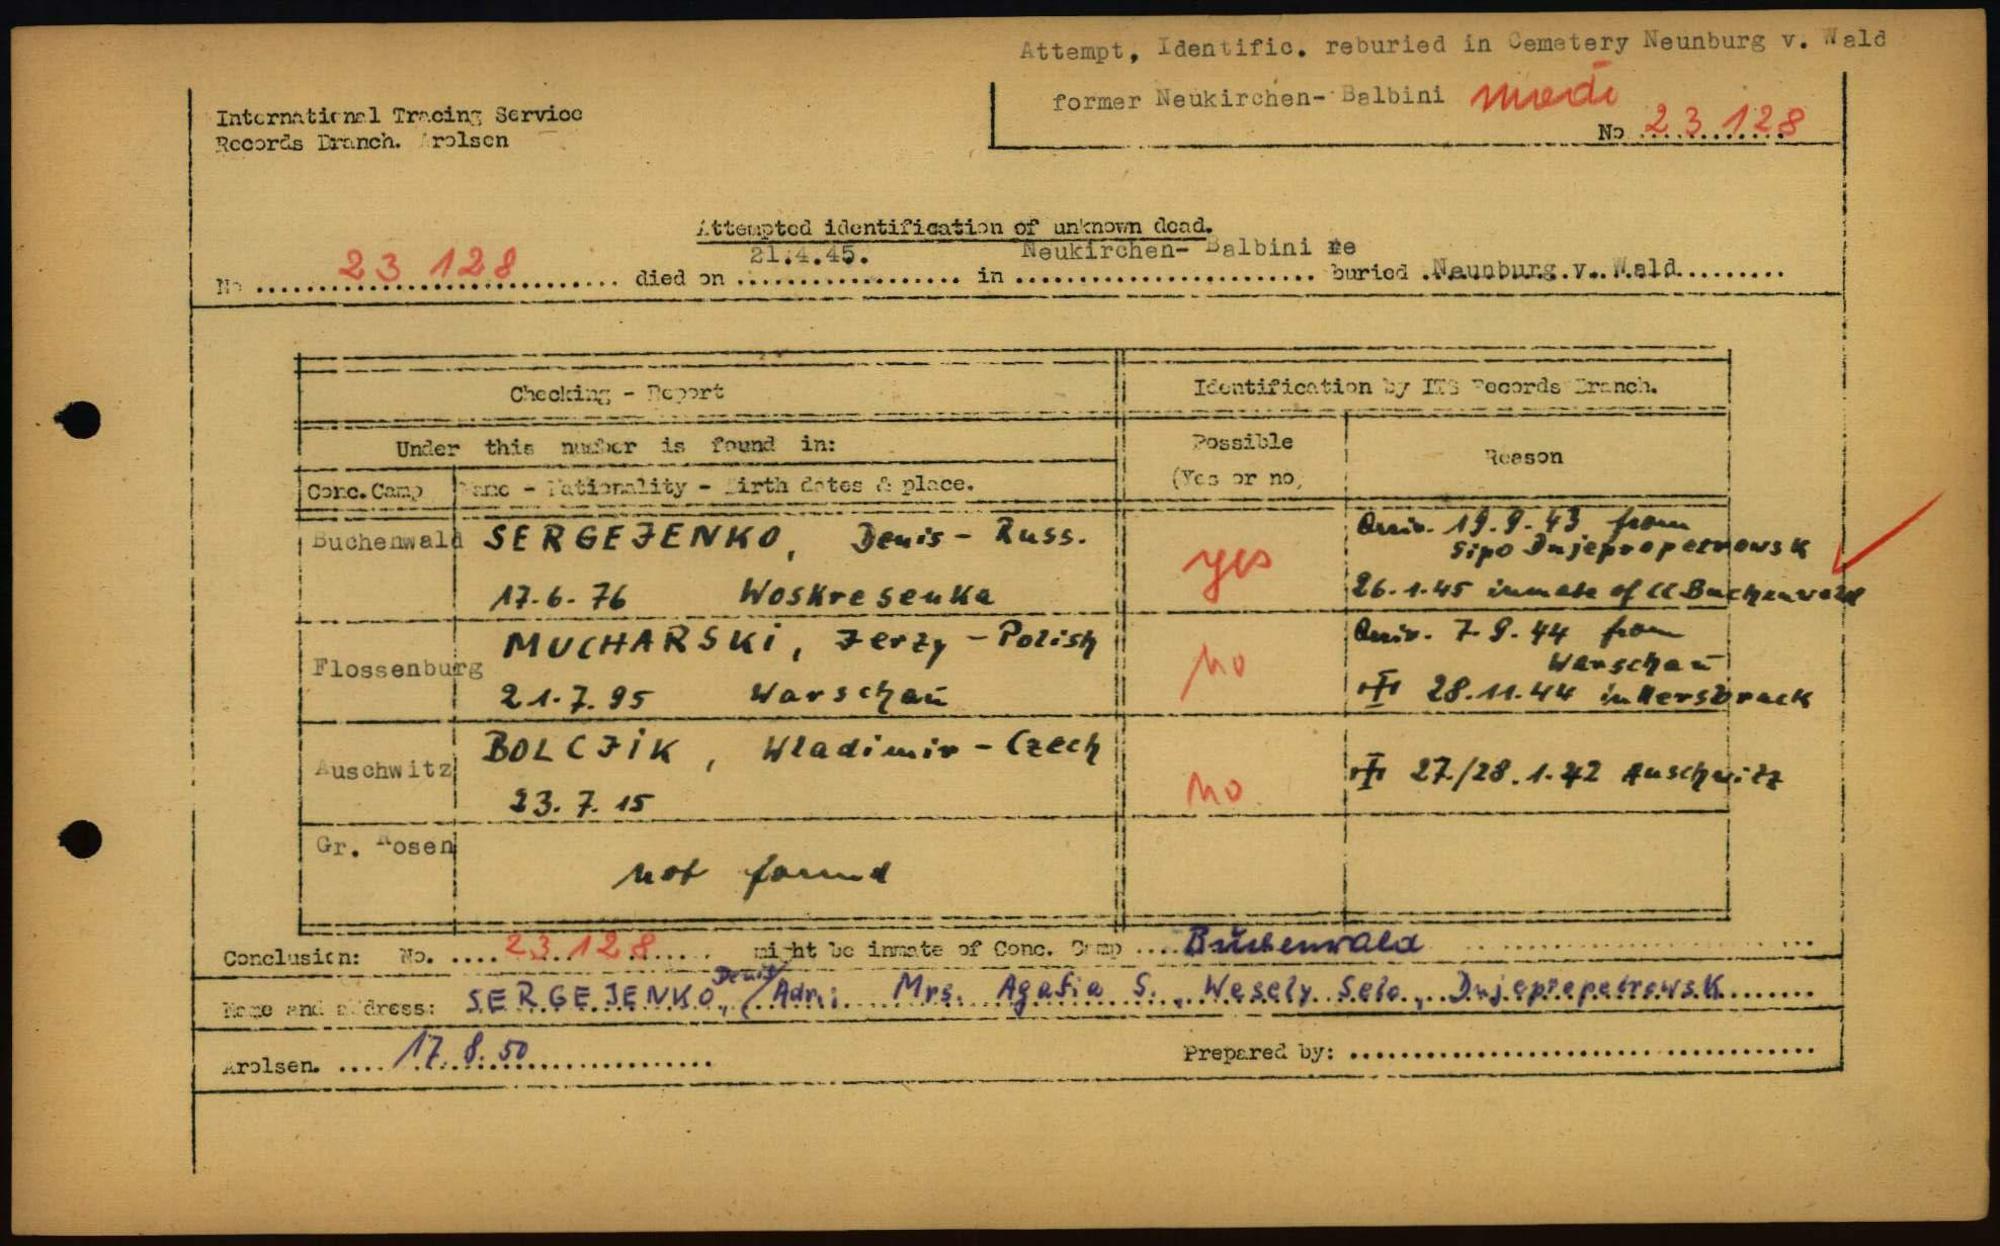 Attempt, Identific. reburied in Cemetery Neunburg v. Wald
former Neukirchen- Balbini
No 23128
International Tracing Service
Records Branch. Arolsen
Attempted identification of unknown dead.
No 23128 died on 21.4.45. in Neukirchen- Balbini re buried Neunburg v. Wald
Checking - Report
Identification by ITS Records Branch.
Under this number is found in:
Possible
(Yes or no)
Reason
Conc. Camp
Name - Nationality - Birth dates & place.
Buchenwald SERGEJENKO, Denis - Russ.
17.6.76 Woskresenka
yes
Arriv. 19.9.43 from
Sipo Dnjepropetrowsk
26.1.45 inmate of CC Buchenwald
Flossenburg MUCHARSKI, Jerzy - Polish
21.7.95 Warschau
no
Arriv. 7.9.44 from
Warschau
28.11.44 in Hersbruck
Auschwitz BOLCJIK, Wladimir - Czech
23.7.15
no
27./28.1.42 Auschwitz
Gr. Rosen
not found
Conclusion: No. 23128 might be inmate of Conc. Camp Buchenwald
Name and address: SERGEJENKO, Denis, Adr.: Mrs. Agafia S., Wesely Selo, Dnjepropetrowsk
Arolsen. 17.8.50
Prepared by: